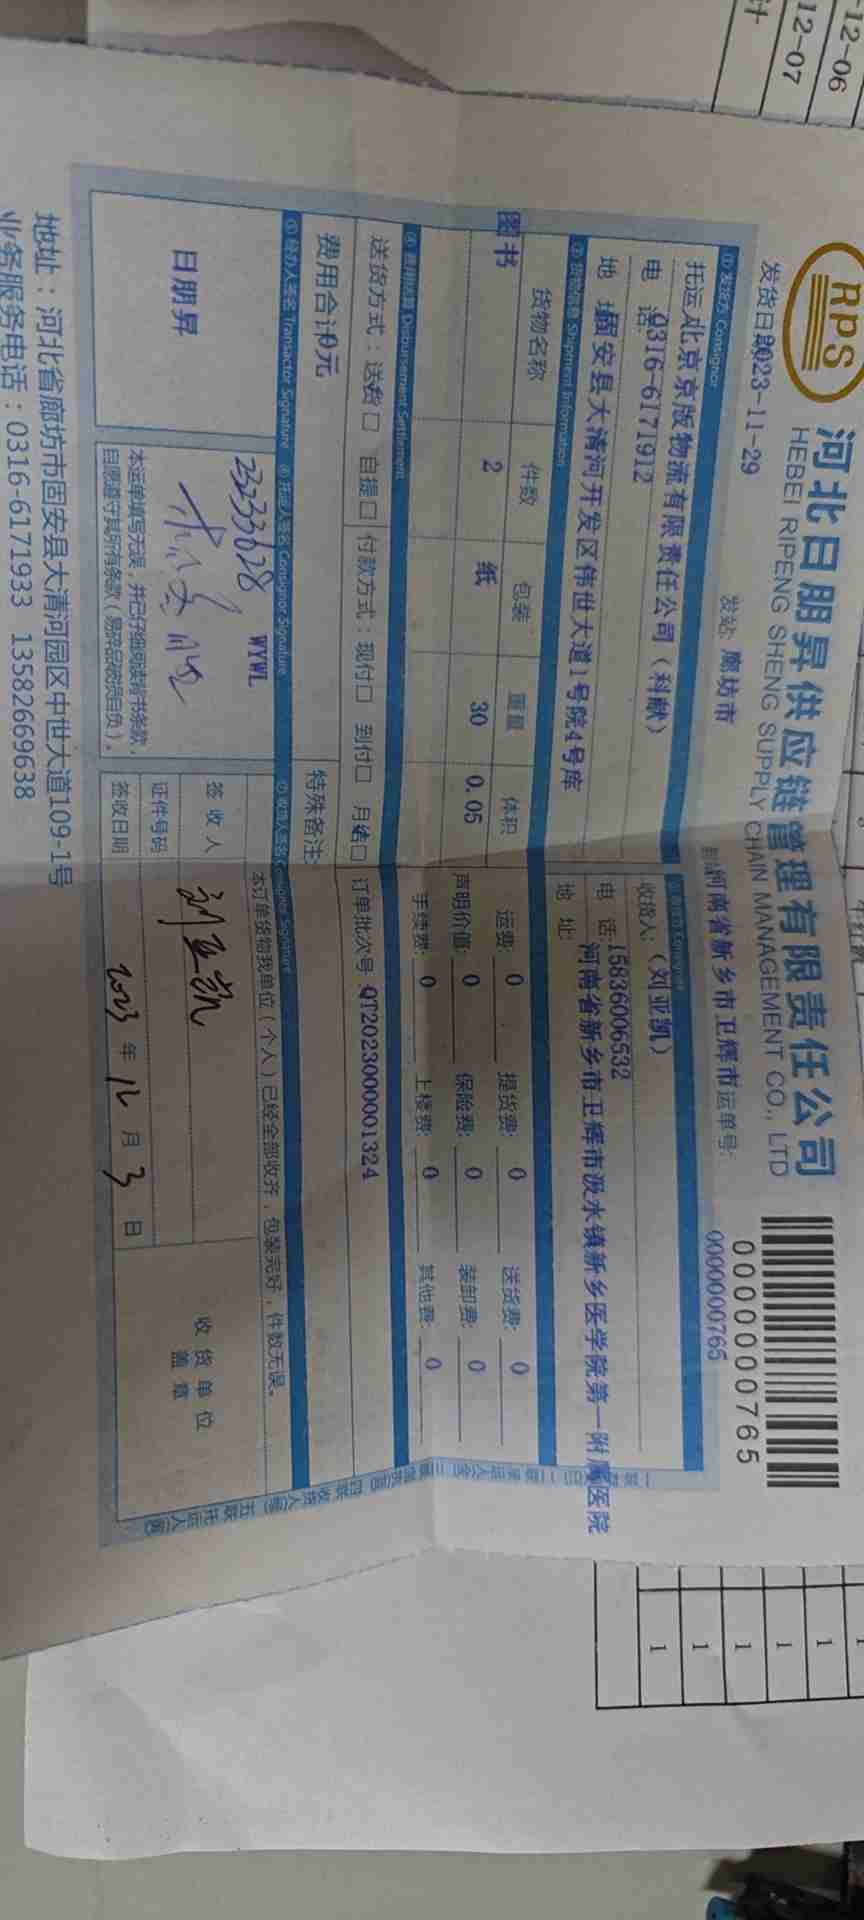 RPS
河北日朋昇供应链管理有限责任公司
HEBEI RIPENG SHENG SUPPLY CHAIN MANAGEMENT CO., LTD
0000000765
发货日期2023-11-29
发站: 廊坊市
到站河南省新乡市卫辉市
运单号:
0000000765
① 发货方 Consignor
托运人北京京版物流有限责任公司(科献)
电 话:0316-6171912
地 址固安县大清河开发区伟世大道1号院4号库
收货人: (刘亚凯)
电 话:15836006532
地 址: 河南省新乡市卫辉市汲水镇新乡医学院第一附属医院
③ 货物信息 Shipment Information
货物名称 件数 包装 重量 体积
图书 2 纸 30 0.05
运费: 0 提货费: 0 送货费: 0
声明价值: 0 保险费: 0 装卸费: 0
手续费: 0 上楼费: 0 其他费: 0
④ 费用结算 Disbursement Settlement
送货方式:送货口 自提口
付款方式:现付口 到付口 月结口
订单批次号 QT2023000001324
费用合计0元
特殊备注:
⑤ 经办人签名 Transactor Signature
⑥ 托运人签名 Consignor Signature
⑦ 收货人签名 Consignee Signature
日朋昇
23233628
WYWL
本运单填写无误,并已仔细阅读背书条款,
自愿遵守其所有条款(易碎品破损自负)。
本订单货物我单位(个人)已经全部收齐,包装完好,件数无误。
签 收 人 刘亚凯
证件号码
签收日期 2023 年 12 月 3 日
收 货 单 位
盖 章
地址:河北省廊坊市固安县大清河园区中世大道109-1号
业务服务电话:0316-6171933 13582669638
12-06
12-07
计
1
1
1
1
1